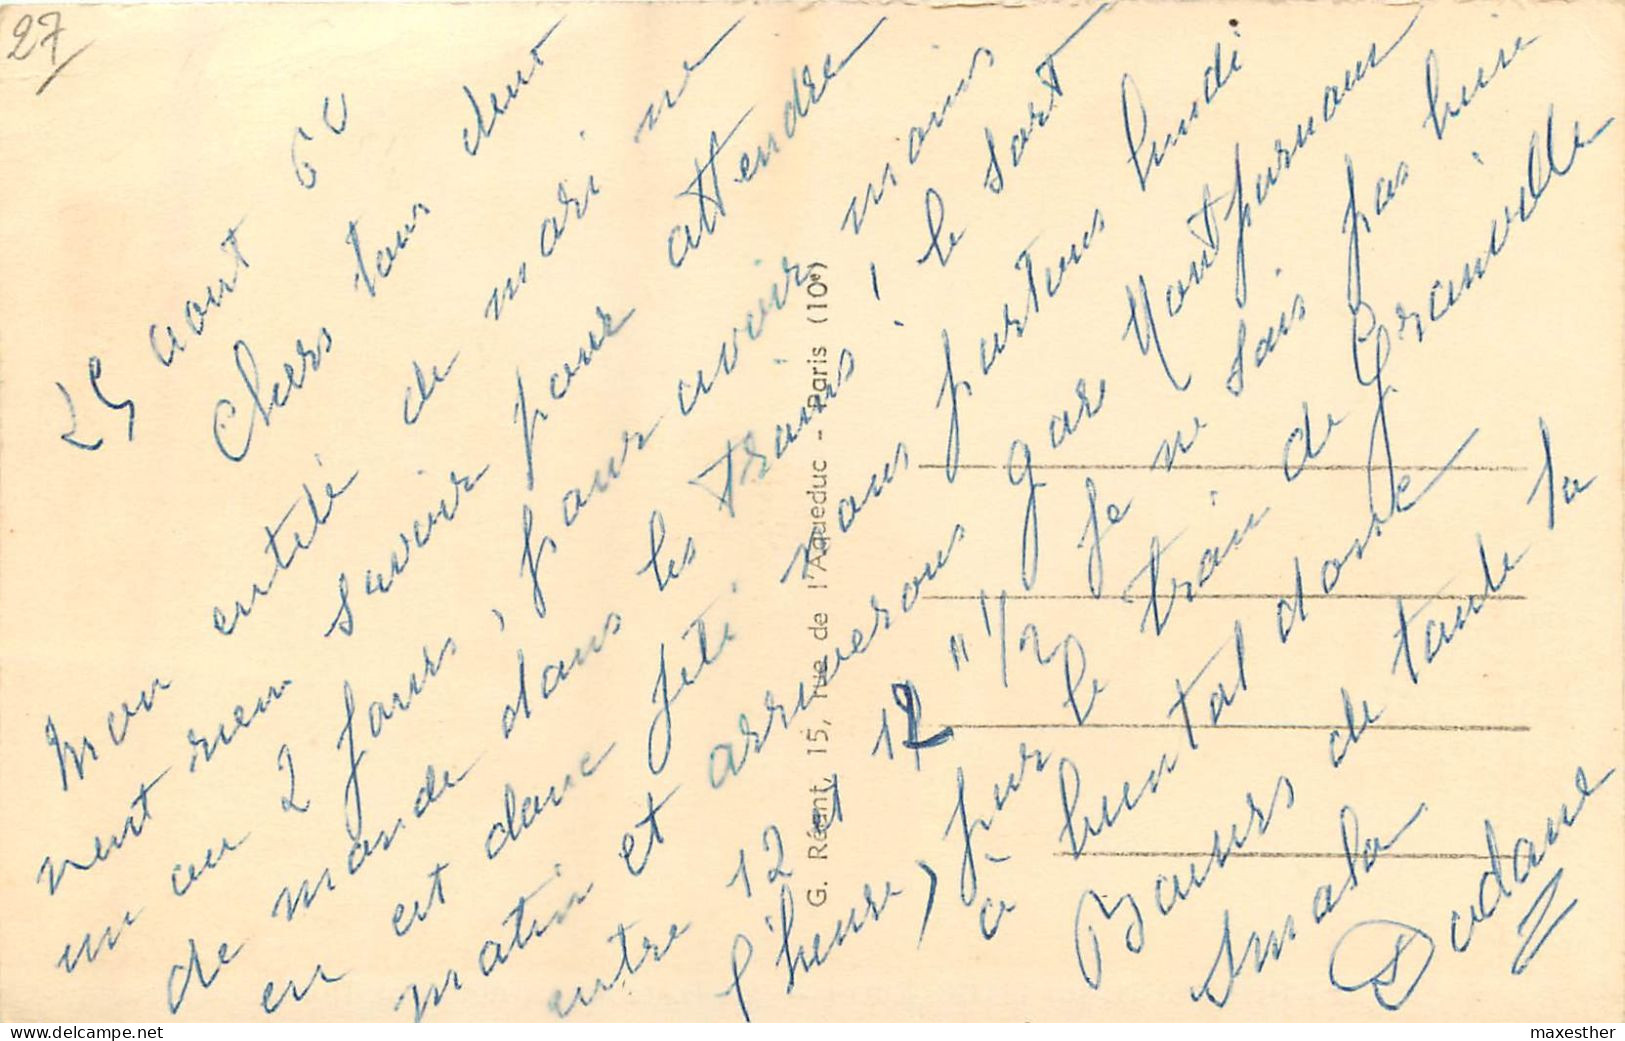 27
25 aout 60
Chers tous deux
Mon entêté de mari ne
veut rien savoir pour attendre
un ou 2 jours, pour avoir moins
de monde dans les trains ! le sort
en est donc jeté nous partons lundi
matin et arriverons gare Montparnasse
entre 12 et 12 " 1/2 je ne sais pas bien
l'heure) par le train de Granville
à bientôt donc
Baisers de toute la
Smala
Dodane
G. Réant, 15, rue de l'Aqueduc - Paris (10e)
delcampe.net
maxesther